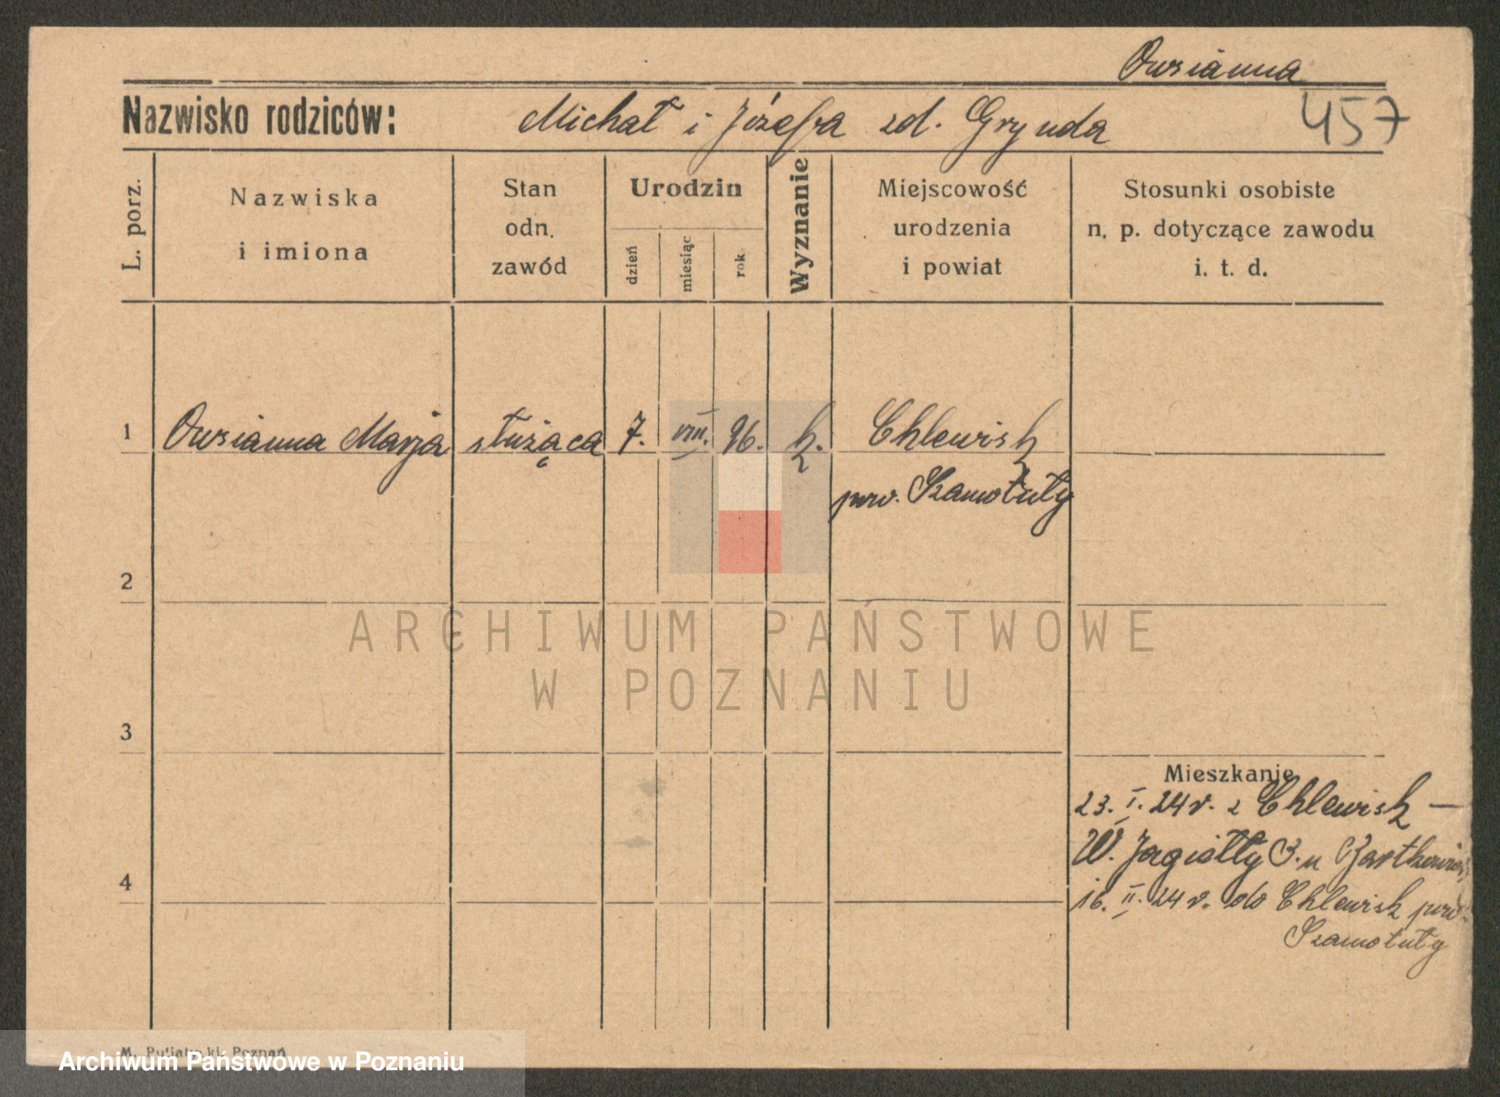 Owsianna
457
Nazwisko rodziców: Michał i Józefa zd. Gryuda
L. porz.
Nazwiska
i imiona
Stan
odn.
zawód
Urodzin
dzień
miesiąc
rok
Wyznanie
Miejscowość
urodzenia
i powiat
Stosunki osobiste
n. p. dotyczące zawodu
i. t. d.
1 Owsianna Marja służąca 7. VIII. 96. k. Chlewisk
pow. Szamotuły
2
3
Mieszkanie
23. I. 24 r. z Chlewisk —
W. Jagiełły 3. u
4
16. II. 24 r. do Chlewisk pow.
Szamotuły
ARCHIWUM PAŃSTWOWE
W POZNANIU
Poznań
Archiwum Państwowe w Poznaniu